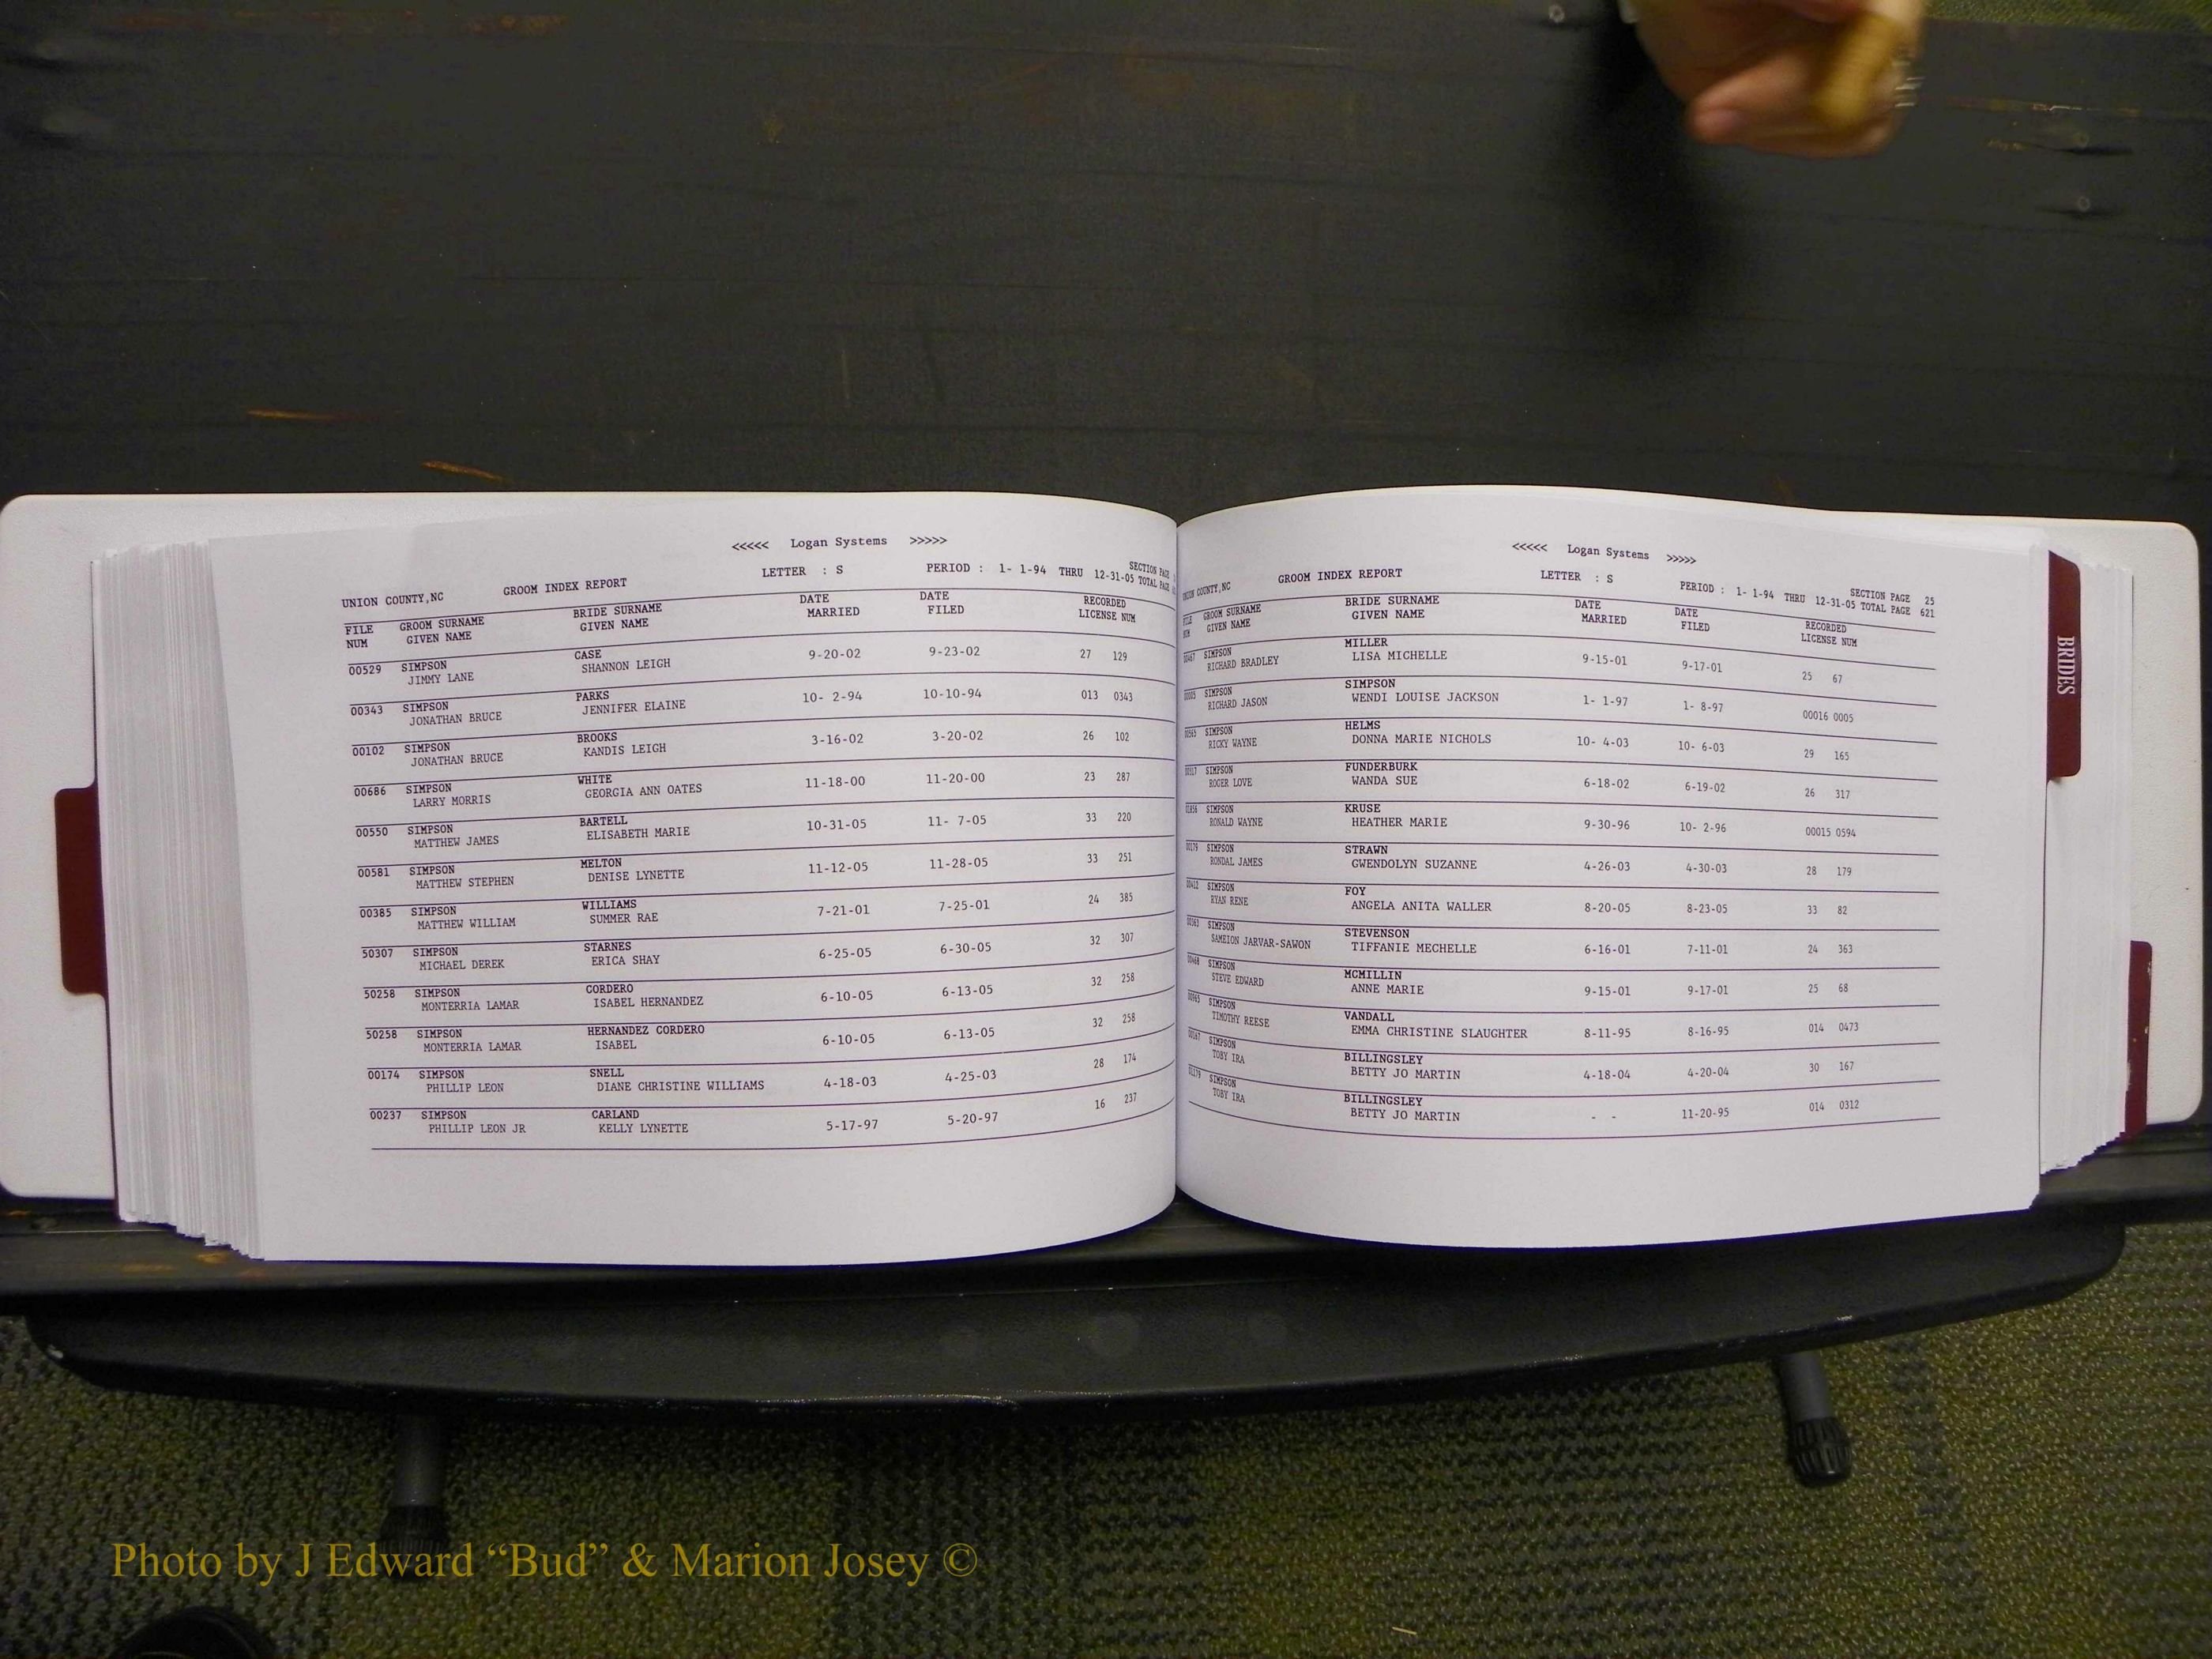 <<<<< Logan Systems >>>>>
UNION COUNTY,NC GROOM INDEX REPORT LETTER : S PERIOD : 1- 1-94 THRU 12-31-05 SECTION PAGE
TOTAL PAGE
FILE GROOM SURNAME BRIDE SURNAME DATE DATE RECORDED
NUM GIVEN NAME GIVEN NAME MARRIED FILED LICENSE NUM
00529 SIMPSON CASE 9-20-02 9-23-02 27 129
JIMMY LANE SHANNON LEIGH
00343 SIMPSON PARKS 10- 2-94 10-10-94 013 0343
JONATHAN BRUCE JENNIFER ELAINE
00102 SIMPSON BROOKS 3-16-02 3-20-02 26 102
JONATHAN BRUCE KANDIS LEIGH
00686 SIMPSON WHITE 11-18-00 11-20-00 23 287
LARRY MORRIS GEORGIA ANN OATES
00550 SIMPSON BARTELL 10-31-05 11- 7-05 33 220
MATTHEW JAMES ELISABETH MARIE
00581 SIMPSON MELTON 11-12-05 11-28-05 33 251
MATTHEW STEPHEN DENISE LYNETTE
00385 SIMPSON WILLIAMS 7-21-01 7-25-01 24 385
MATTHEW WILLIAM SUMMER RAE
50307 SIMPSON STARNES 6-25-05 6-30-05 32 307
MICHAEL DEREK ERICA SHAY
50258 SIMPSON CORDERO 6-10-05 6-13-05 32 258
MONTERRIA LAMAR ISABEL HERNANDEZ
50258 SIMPSON HERNANDEZ CORDERO 6-10-05 6-13-05 32 258
MONTERRIA LAMAR ISABEL
00174 SIMPSON SNELL 4-18-03 4-25-03 28 174
PHILLIP LEON DIANE CHRISTINE WILLIAMS
00237 SIMPSON CARLAND 5-17-97 5-20-97 16 237
PHILLIP LEON JR KELLY LYNETTE
<<<<< Logan Systems >>>>>
UNION COUNTY,NC GROOM INDEX REPORT LETTER : S PERIOD : 1- 1-94 THRU 12-31-05 SECTION PAGE 25
TOTAL PAGE 621
FILE GROOM SURNAME BRIDE SURNAME DATE DATE RECORDED
NUM GIVEN NAME GIVEN NAME MARRIED FILED LICENSE NUM
SIMPSON MILLER 9-15-01 9-17-01 25 67
RICHARD BRADLEY LISA MICHELLE
SIMPSON SIMPSON 1- 1-97 1- 8-97 00016 0005
RICHARD JASON WENDI LOUISE JACKSON
SIMPSON HELMS 10- 4-03 10- 6-03 29 165
RICKY WAYNE DONNA MARIE NICHOLS
SIMPSON FUNDERBURK 6-18-02 6-19-02 26 317
ROGER LOVE WANDA SUE
SIMPSON KRUSE 9-30-96 10- 2-96 00015 0594
RONALD WAYNE HEATHER MARIE
00179 SIMPSON STRAWN 4-26-03 4-30-03 28 179
RONDAL JAMES GWENDOLYN SUZANNE
SIMPSON FOY 8-20-05 8-23-05 33 82
RYAN RENE ANGELA ANITA WALLER
00363 SIMPSON STEVENSON 6-16-01 7-11-01 24 363
SAMEION JARVAR-SAWON TIFFANIE MECHELLE
SIMPSON MCMILLIN 9-15-01 9-17-01 25 68
STEVE EDWARD ANNE MARIE
SIMPSON VANDALL 8-11-95 8-16-95 014 0473
TIMOTHY REESE EMMA CHRISTINE SLAUGHTER
00167 SIMPSON BILLINGSLEY 4-18-04 4-20-04 30 167
TOBY IRA BETTY JO MARTIN
SIMPSON BILLINGSLEY - - 11-20-95 014 0312
TOBY IRA BETTY JO MARTIN
BRIDES
Photo by J Edward “Bud” & Marion Josey ©